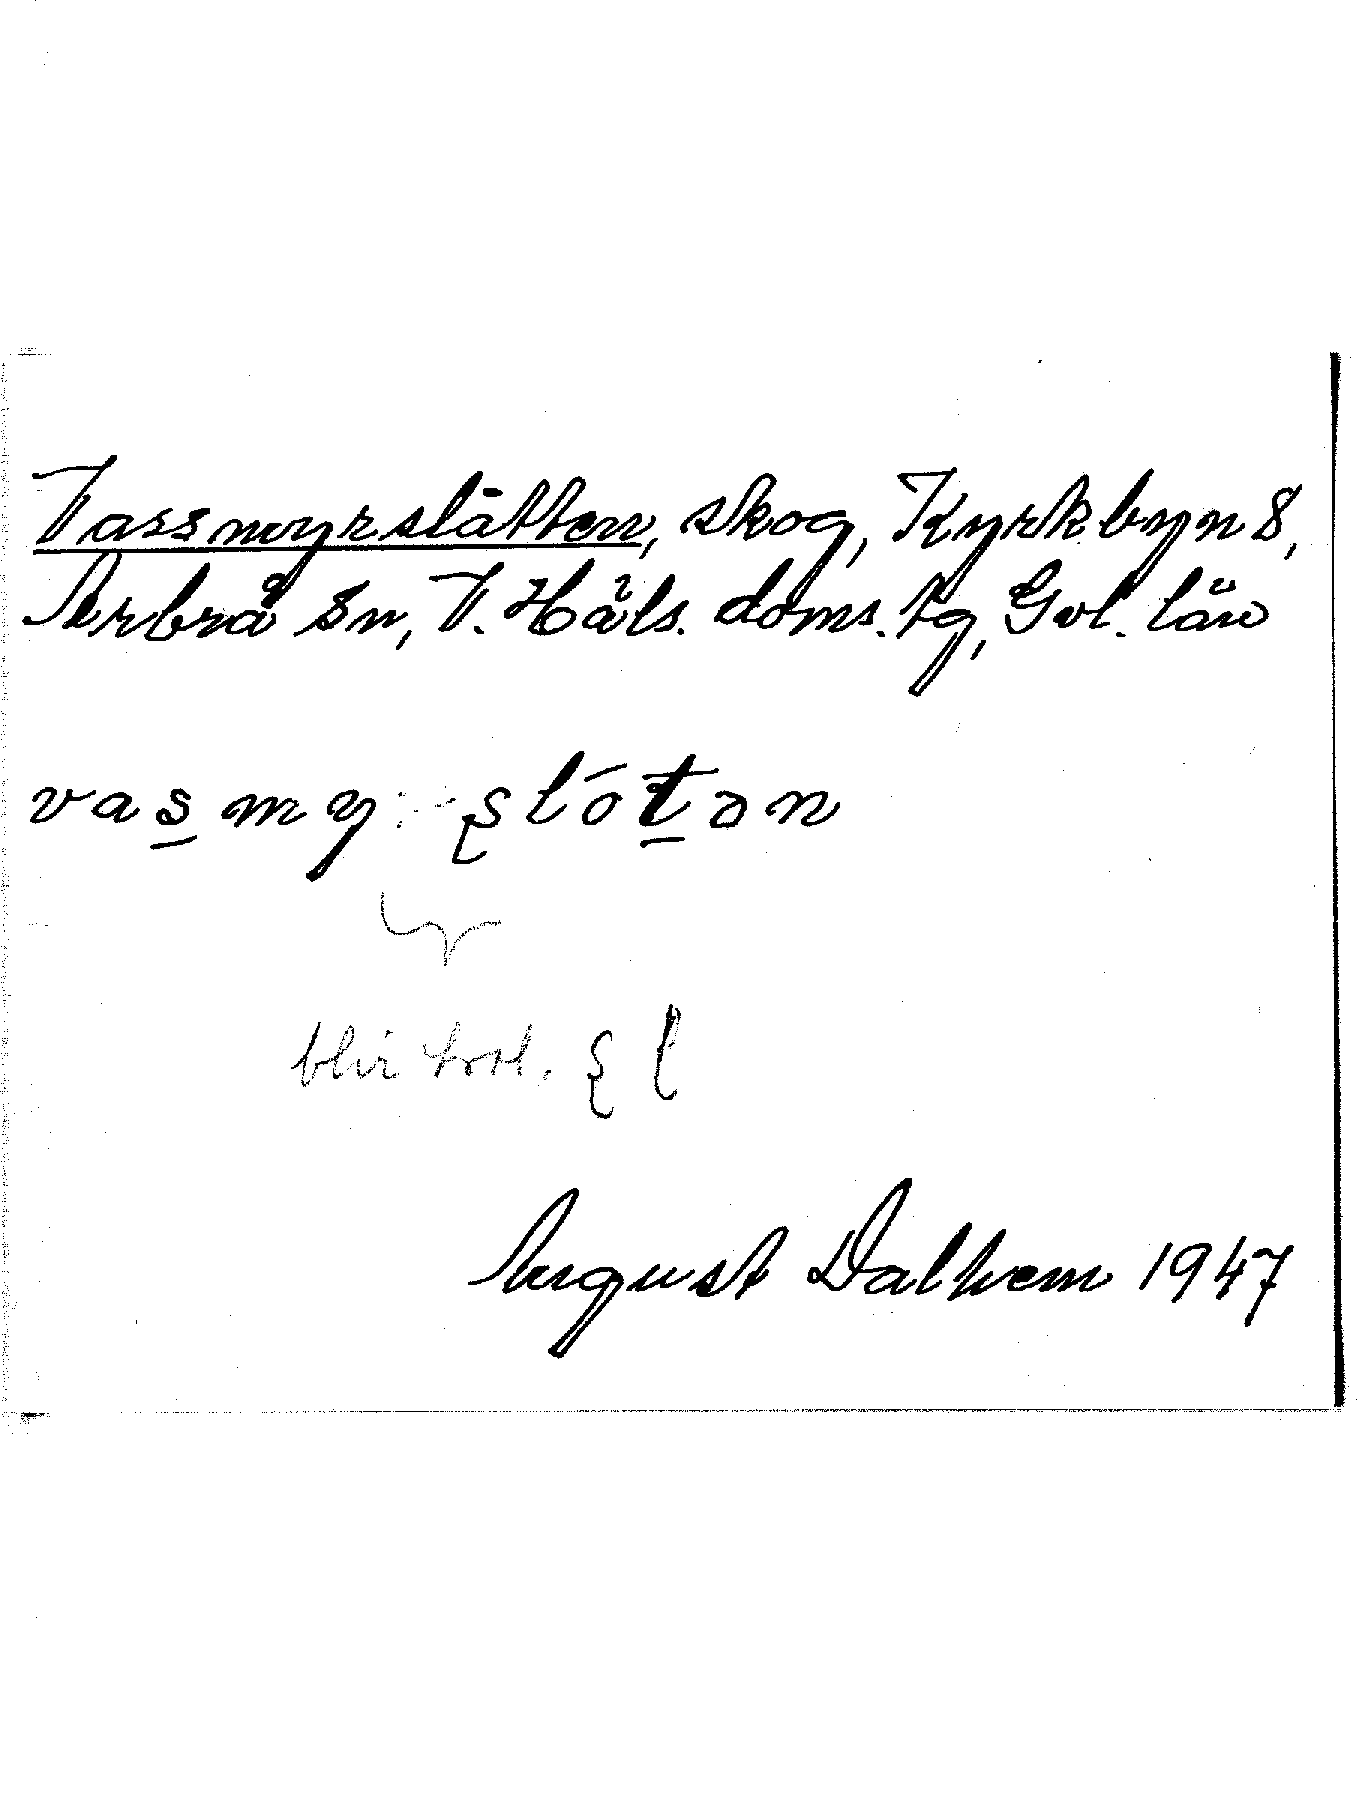 Vassmyrslåtten, skog, Kyrkbyn 8,
Arbrå sn, V. Häls. doms. tg, Gvl. län
vas̠my:-ʂlót̠ən
blir trol. ʂ ɭ
August Dalhem 1947